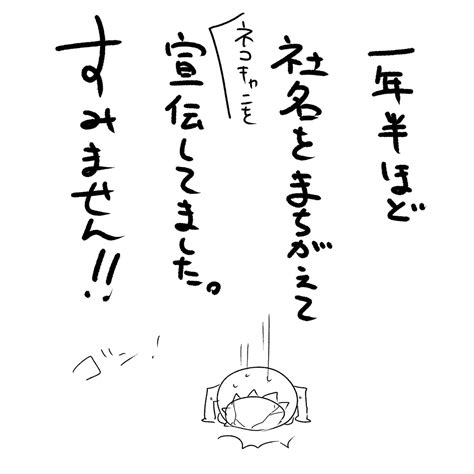 一年半ほど
社名をまちがえて
ネコキャニを
宣伝してました。
すみません!!
ゴン!